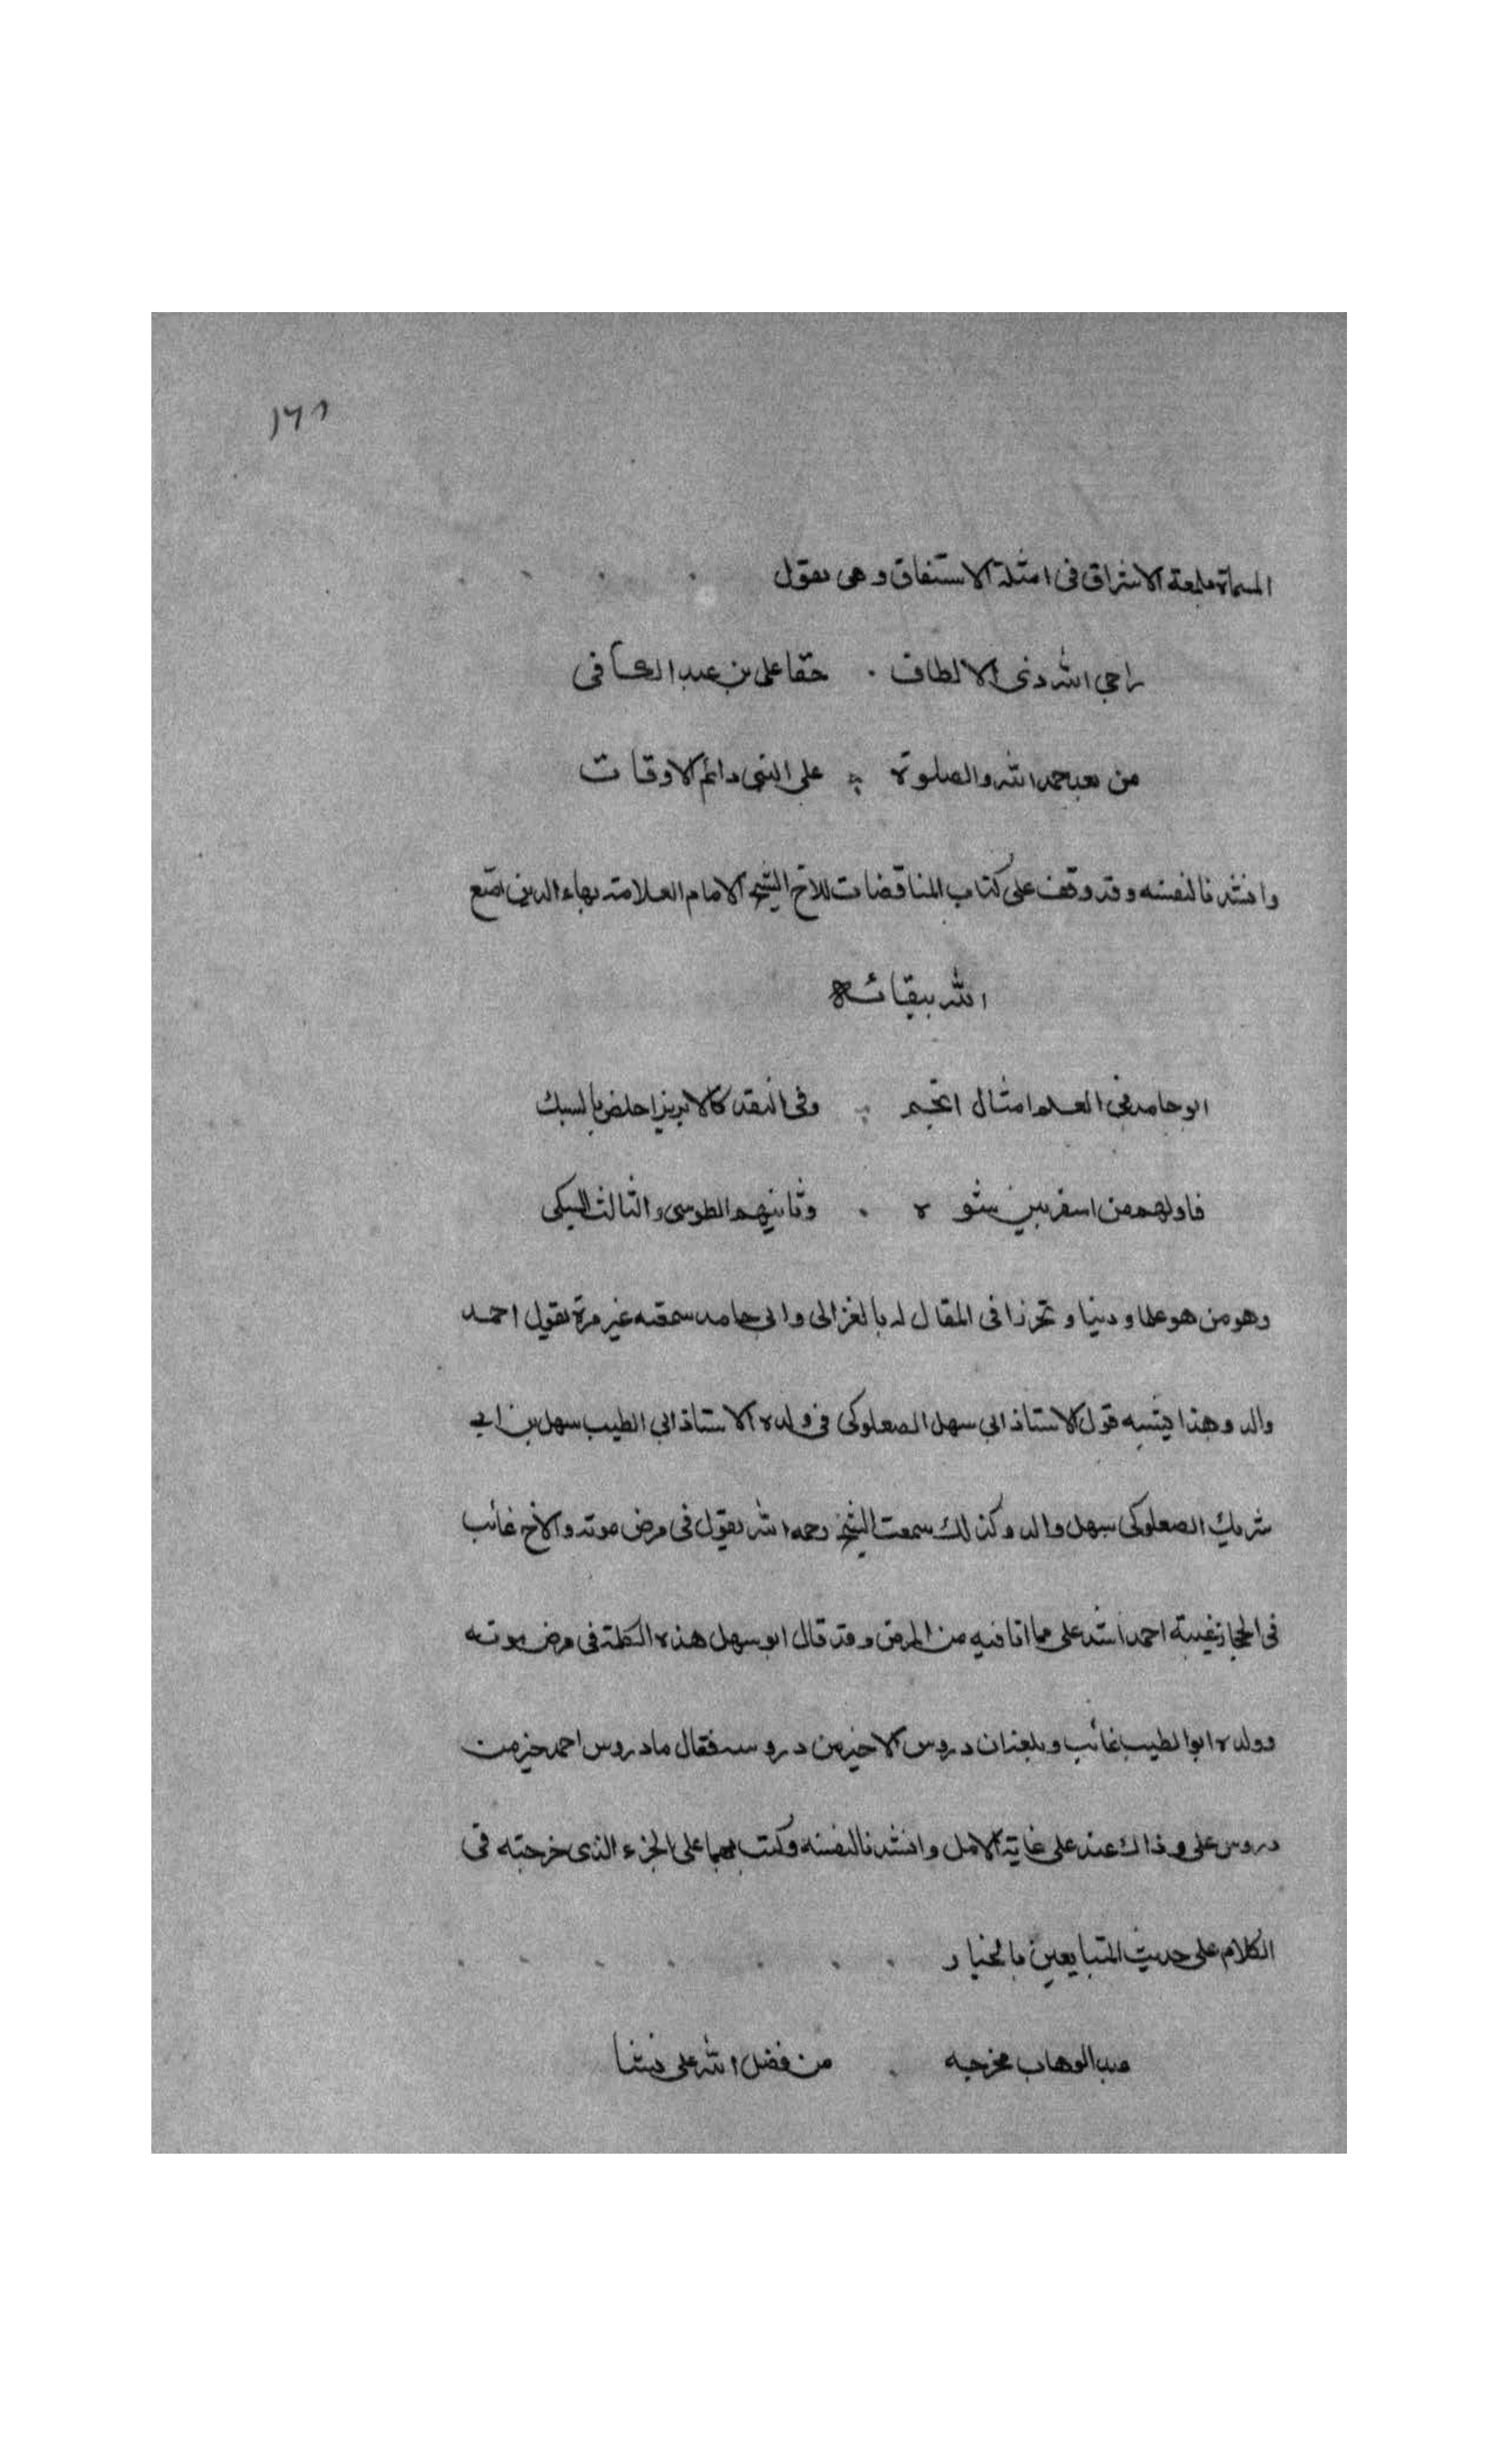 ١٦١
المسماة بلمعة الاشراق فى امثلة الاشتقاق وهى يقول
راجى الله ذى الالطاف . حقا على بن عبد الكافى
من بعد حمد الله والصلوة على النبى دائم الاوقات
وانشدنا لنفسه وقد وقف على كتاب المناقضات للاخ الشيخ الامام العلامة بهاء الدين امتع
الله ببقائه
ابو حامد فى العلم امثال انجم وفى النقد كالابريز اخلص بالسبك
فاولهم من اسفرايين نشوه . وثانيهم الطوسى والثالث السبكى
وهو من هو علما ودينا وتحرزا فى المقال له بالغزالى وابى حامد سمعته غير مرة يقول احمد
والد وهذا يشبه قول الاستاذ ابى سهل الصعلوكى فى ولده الاستاذ ابى الطيب سهل بن ابى
شريك الصعلوكى سهل والد وكذلك سمعت الشيخ رحمه الله يقول فى مرض موته والاخ غائب
فى الحجاز غيبة احمد اشد على مما انا فيه من المرض وقد قال ابو سهل هذه الكلمة فى مرض موته
وولده ابو الطيب غائب وبلغنا ان دروس الاخ خير من دروسه فقال ما دروس احمد خير من
دروس على وذاك عند على غاية الامل وانشدنا لنفسه وكتب بهما على الجزء الذى خرجته فى
الكلام على حديث المتبايعين بالخيار
عبد الوهاب مخرجه . من فضل الله على نشا